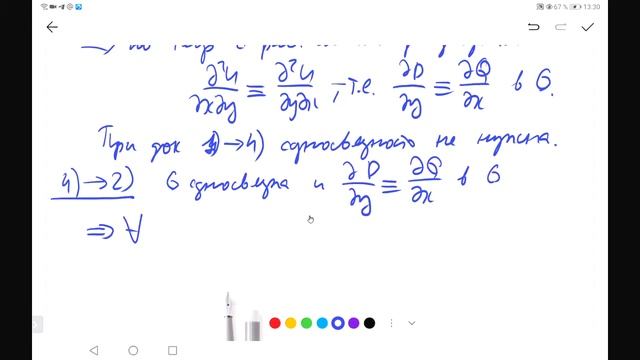 67 % 13:30
∂²u/∂x∂y ≡ ∂²u/∂y∂x, т.е. ∂P/∂y ≡ ∂Q/∂x в G.
При док →4) односвязность не нужна.
4)→2) G односвязна и ∂P/∂y ≡ ∂Q/∂x в G
⇒ ∀